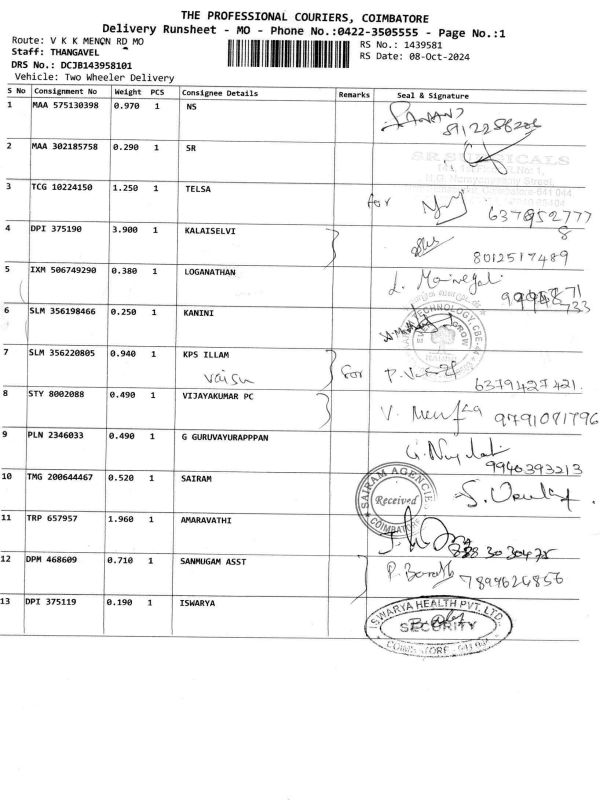 THE PROFESSIONAL COURIERS, COIMBATORE
Delivery Runsheet - MO - Phone No.:0422-3505555 - Page No.:1
Route: V K K MENON RD MO
RS No.: 1439581
Staff: THANGAVEL
RS Date: 08-Oct-2024
DRS No.: DCJB143958101
Vehicle: Two Wheeler Delivery
S No Consignment No Weight PCS Consignee Details Remarks Seal & Signature
1 MAA 575130398 0.970 1 NS
2 MAA 302185758 0.290 1 SR
SR SURGICALS
3 TCG 10224150 1.250 1 TELSA for 637952777
8
4 DPI 375190 3.900 1 KALAISELVI
8012517489
5 IXM 506749290 0.380 1 LOGANATHAN
6 SLM 356198466 0.250 1 KANINI
7 SLM 356220805 0.940 1 KPS ILLAM for
Vaisu 6379427421.
8 STY 8002088 0.490 1 VIJAYAKUMAR PC V. 9791071796
9 PLN 2346033 0.490 1 G GURUVAYURAPPPAN
9940393213
10 TMG 200644467 0.520 1 SAIRAM
SAIRAM AGENCIES
Received
COIMBATORE
11 TRP 657957 1.960 1 AMARAVATHI
12 DPM 468609 0.710 1 SANMUGAM ASST P. 7899624856
13 DPI 375119 0.190 1 ISWARYA
ISWARYA HEALTH PVT. LTD.
SECURITY